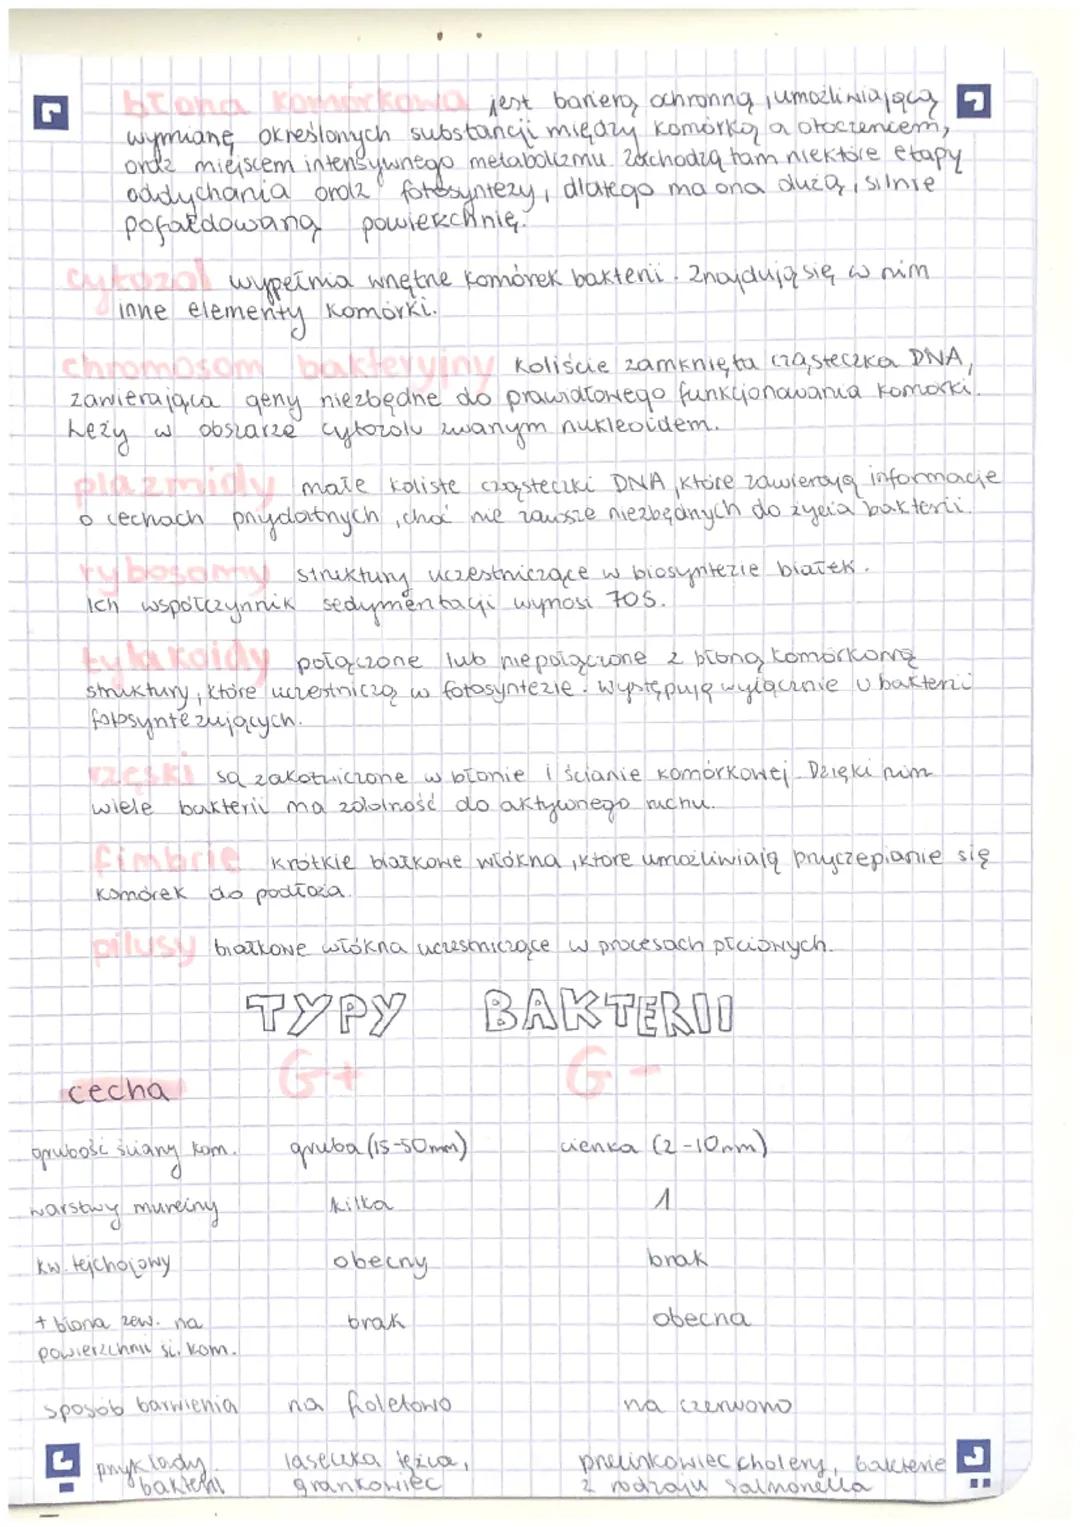 błona komórkowa jest barierą ochronną, umożliwiającą
wymianę określonych substancji między komórką a otoczeniem,
oraz miejscem intensywnego metabolizmu. Zachodzą tam niektóre etapy
oddychania oraz fotosyntezy, dlatego ma ona dużą, silnie
pofałdowaną powierzchnię.
cytozol wypełnia wnętrze komórek bakterii. Znajdują się w nim
inne elementy komórki.
chromosom bakteryjny koliście zamknięta cząsteczka DNA,
zawierająca geny niezbędne do prawidłowego funkcjonowania komórki.
Leży w obszarze cytozolu zwanym nukleoidem.
plazmidy małe koliste cząsteczki DNA, które zawierają informacje
o cechach przydatnych, choć nie zawsze niezbędnych do życia bakterii.
rybosomy struktury uczestniczące w biosyntezie białek.
Ich współczynnik sedymentacji wynosi 70S.
tylakoidy połączone lub niepołączone z błoną komórkową
struktury, które uczestniczą w fotosyntezie. Występują wyłącznie u bakterii
fotosyntezujących.
rzęski są zakotwiczone w błonie i ścianie komórkowej. Dzięki nim
wiele bakterii ma zdolność do aktywnego ruchu.
fimbrie krótkie białkowe włókna, które umożliwiają przyczepianie się
komórek do podłoża.
pilusy białkowe włókna uczestniczące w procesach płciowych.
TYPY BAKTERII
cecha G+ G-
grubość ściany kom. gruba (15-50nm) cienka (2-10nm)
warstwy mureiny kilka 1
kw. tejchojowy obecny brak
+ błona zew. na brak obecna
powierzchni śc. kom.
sposób barwienia na fioletowo na czerwono
przykłady laseczka tężca, przecinkowiec cholery, bakterie
bakterii gronkowiec z rodzaju Salmonella